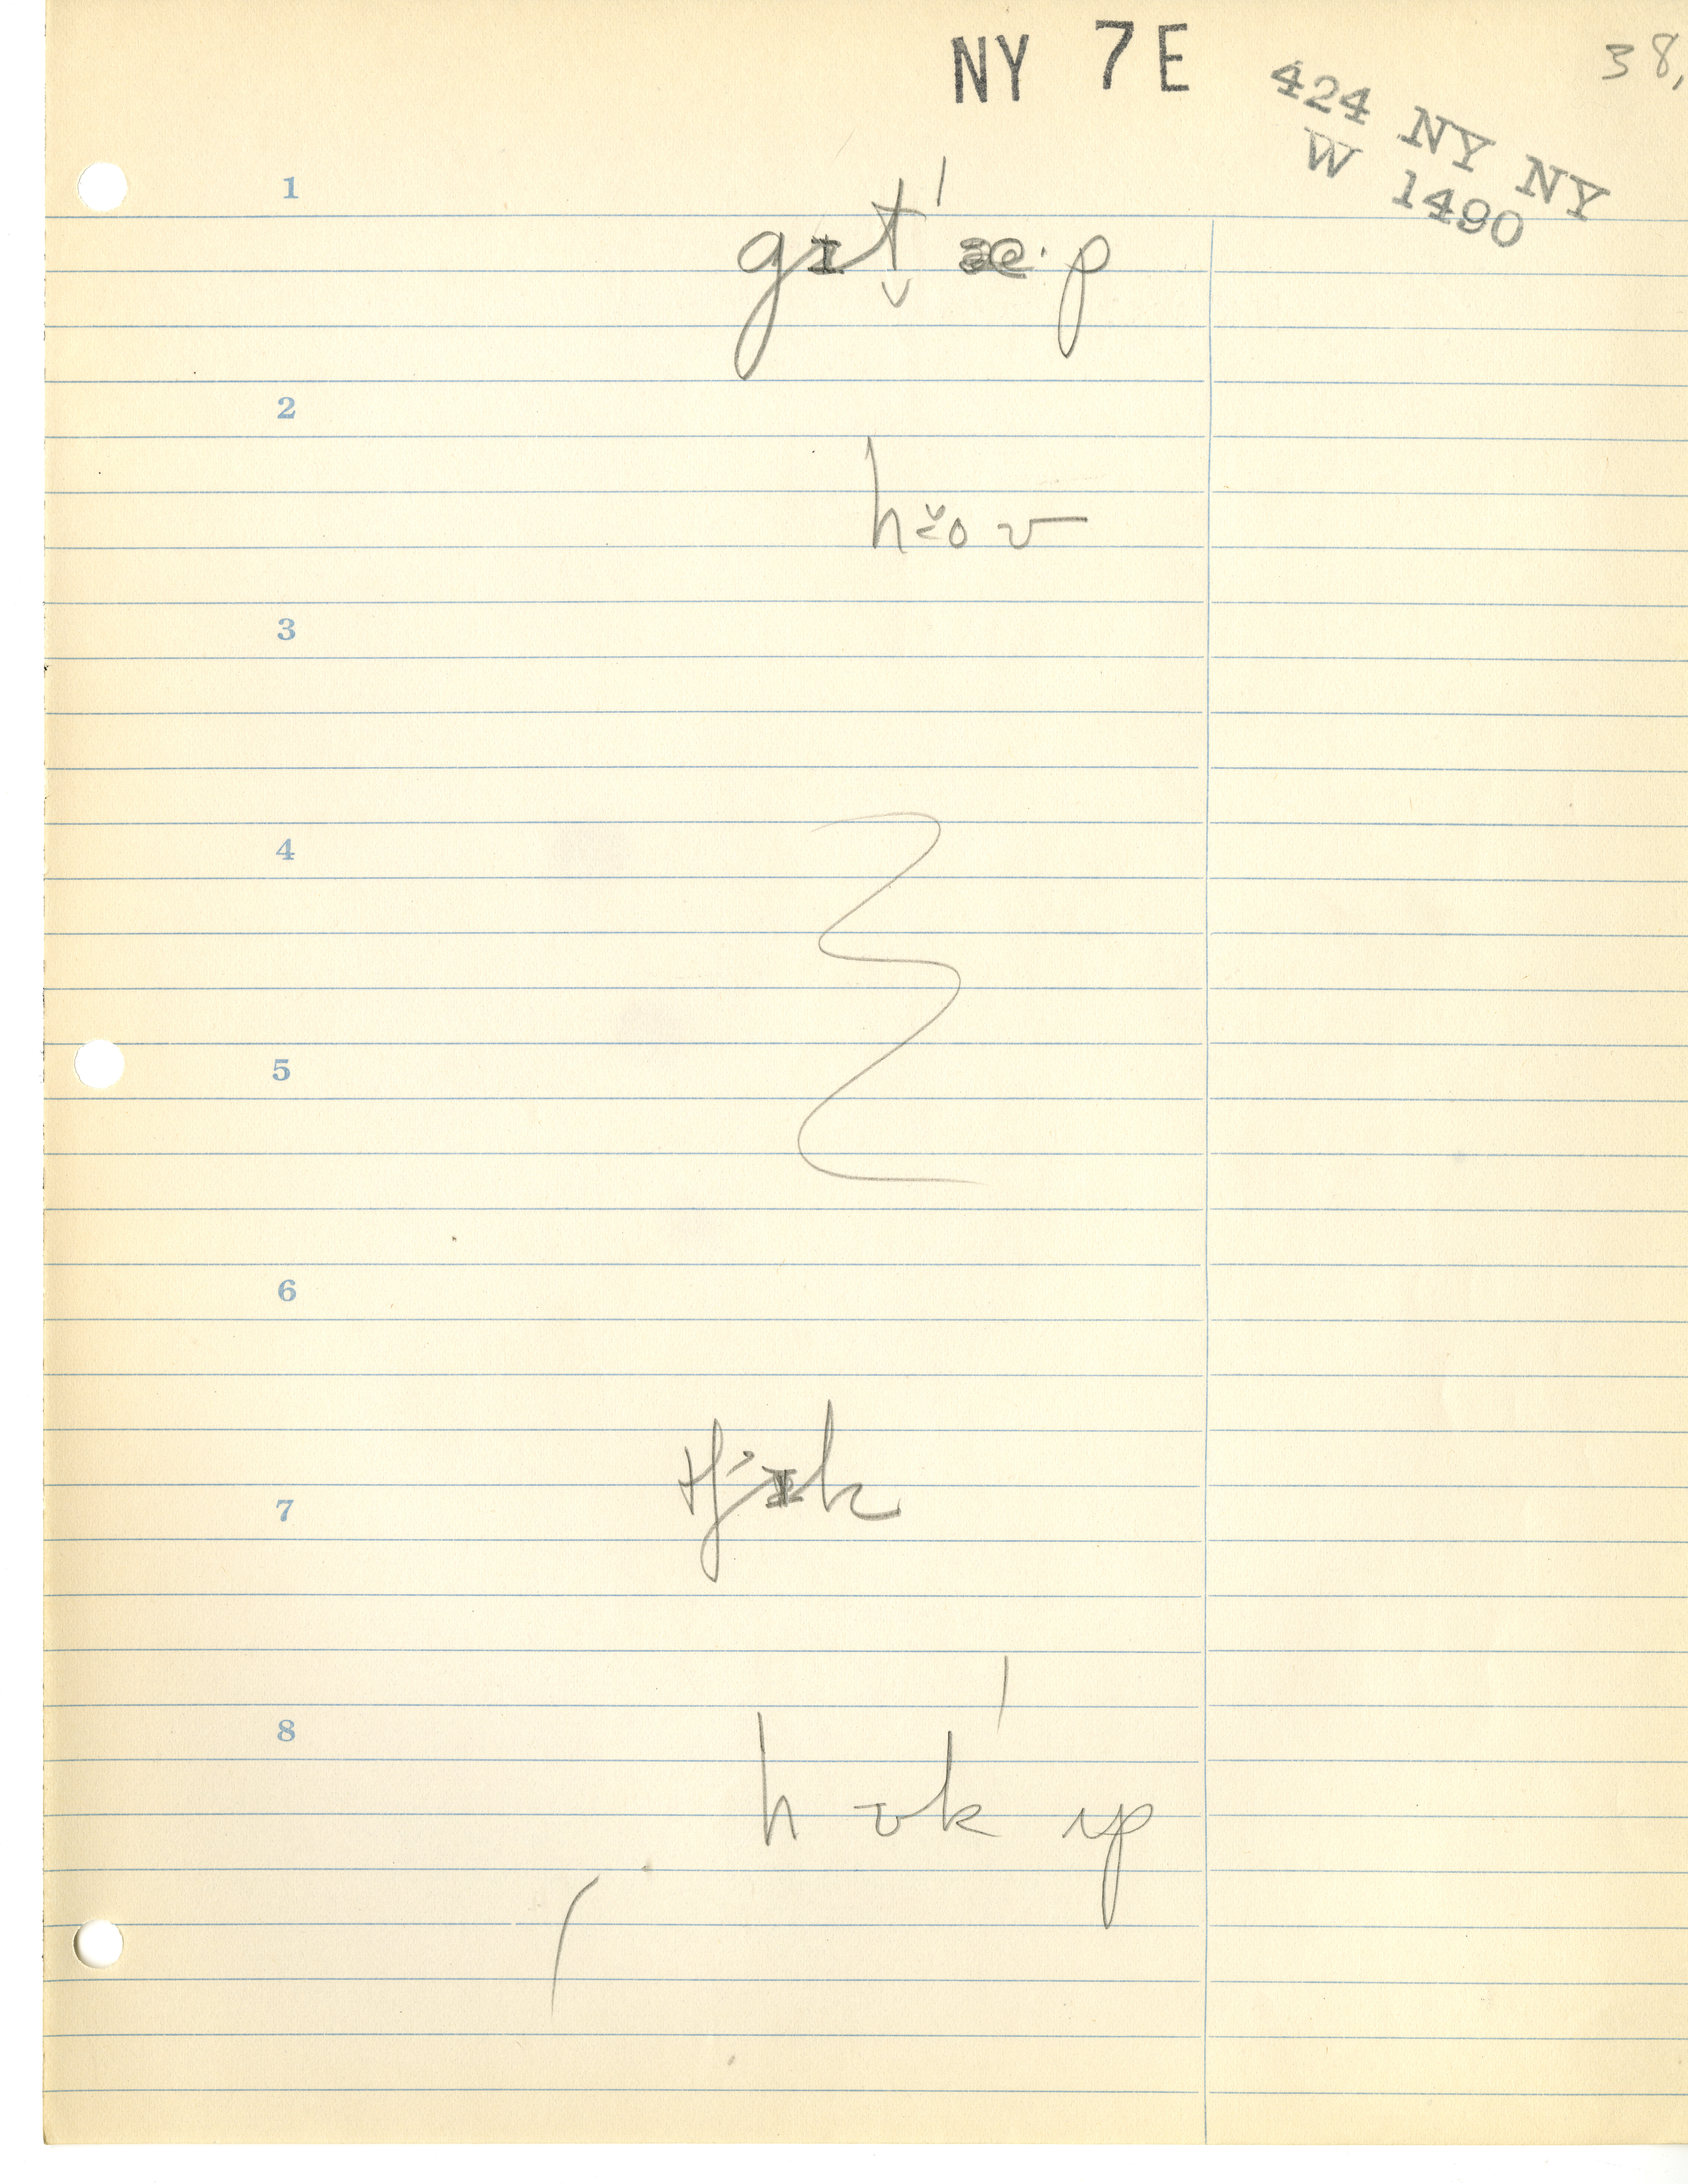 NY 7 E
38,
424 NY NY
W 1490
1
gɪt̬'æ·p
2
3
4
5
6
7
tʃɪk
8
hʊk'ʌp